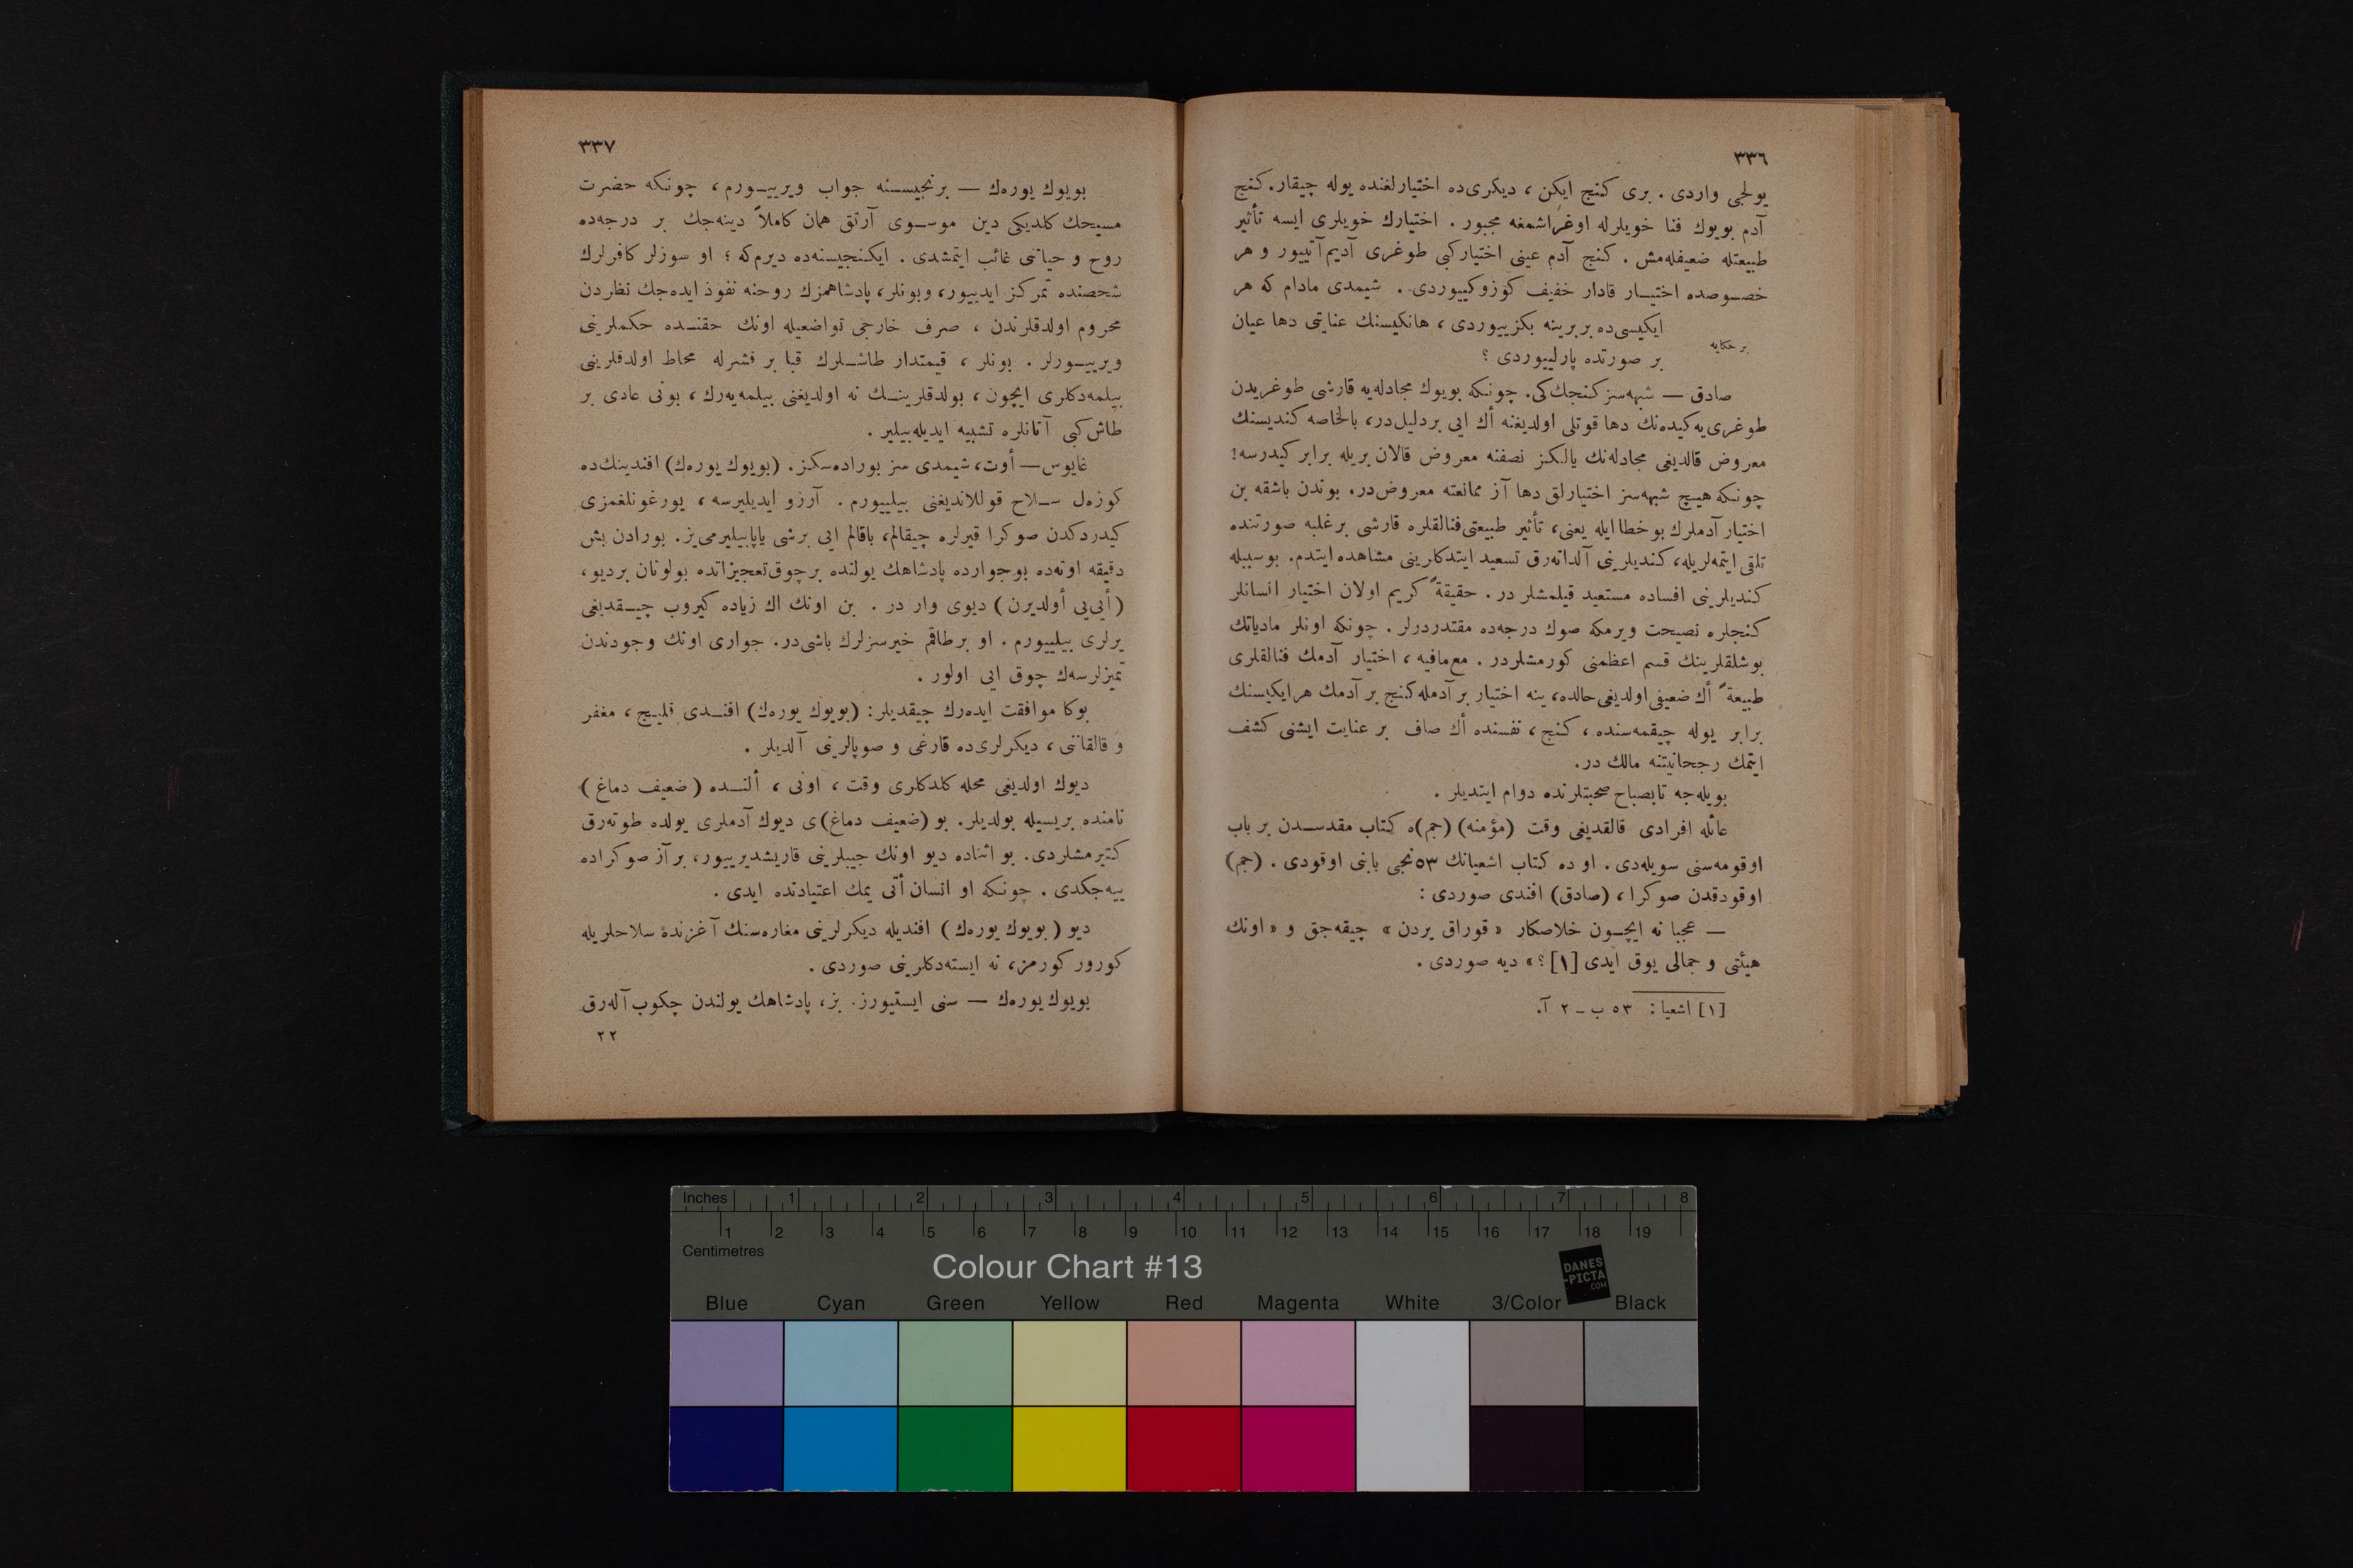 ٣٣٦
يولجى واردى . برى كنج ايكن ، ديكرى‌ده اختيارلغنده يوله چيقار. كنج
آدم بويوك فنا خويلرله اوغراشمغه مجبور . اختيارك خويلرى ايسه تأثير
طبيعتله ضعيفله‌مش . كنج آدم عينى اختيار كبى طوغرى آديم آتييور و هر
خصـوصده اختيـار قادار خفيف كوزوكييوردى . شيمدى مادام كه هر
ايكيسى‌ده بربرينه بكزييوردى ، هانكيسنك عنايتى دها عيان
بر حكايه
بر صورتده پارلييوردى ؟
صادق — شبهه‌سز كنجك‌كى. چونكه بويوك مجادله‌يه قارشى طوغريدن
طوغرى‌يه كيده‌نك دها قوتلى اولديغنه أك ايى بردليل‌در، بالخاصه كنديسنك
معروض قالديغى مجادله‌نك يالكز نصفنه معروض قالان بريله برابر كيدرسه!
چونكه هيچ شبهه‌سز اختيارلق دها آز ممانعته معروض‌در. بوندن باشقه بن
اختيار آدملرك بو خطا ايله يعنى، تأثير طبيعتى فنالقلره قارشى بر غلبه صورتنده
تلقى ايتمه‌لريله، كنديلرينى آلداته‌رق تسعيد ايتدكلرينى مشاهده ايتدم. بو سببله
كنديلرينى افساده مستعيد قيلمشلر در . حقيقةً كريم اولان اختيار انسانلر
كنجلره نصيحت ويرمكه صوك درجه‌ده مقتدردرلر . چونكه اونلر مادياتك
بوشلقلرينك قسم اعظمنى كورمشلردر . مع‌مافيه ، اختيار آدمك فنالقلرى
طبيعةً أك ضعيفى اولديغى حالده، ينه اختيار بر آدمله كنج بر آدمك هر ايكيسنك
برابر يوله چيقمه‌سنده ، كنج ، نفسنده أك صاف بر عنايت ايشنى كشف
ايتمك رجحانيتنه مالك در.
بويله‌جه تا بصباح صحبتلرنده دوام ايتديلر .
عائله افرادى قالقديغى وقت (مؤمنه) (جم)ه كتاب مقدسـدن بر باب
اوقومه‌سنى سويله‌دى . او ده كتاب اشعيانك ٥٣نجى بابنى اوقودى . (جم)
اوقودقدن صوكرا ، (صادق) افندى صوردى :
— عجبا نه ايچـون خلاصكار « قوراق يردن » چيقه‌جق و « اونك
هيئتى و جمالى يوق ايدى [١] ؟» ديه صوردى .
[١] اشعيا : ٥٣ ب – ٢ آ.
٣٣٧
بويوك يوره‌ك — برنجيسـنه جواب ويرييـورم ، چونكه حضرت
مسيحك كلديكى دين موسـوى آرتق همان كاملاً دينه‌جك بر درجه‌ده
روح و حياتنى غائب ايتمشدى . ايكنجيسنه‌ده ديرم‌كه ؛ او سوزلر كافرلرك
شخصنده تمركز ايدييور، وبونلر، پادشاهمزك روحنه نفوذ ايده‌جك نظردن
محروم اولدقلرندن ، صرف خارجى تواضعيله اونك حقنـده حكملرينى
ويرييـورلر . بونلر ، قيمتدار طاشـلرك قبا بر قشرله محاط اولدقلرينى
بيلمه‌دكلرى ايچون ، بولدقلرينـك نه اولديغنى بيلمه‌يه‌رك ، بونى عادى بر
طاش كبى آتانلره تشبيه ايديله‌بيلير .
غايوس — أوت، شيمدى سز بوراده‌سكز. (بويوك يوره‌ك) افندينك‌ده
كوزه‌ل سـلاح قوللانديغنى بيلييورم . آرزو ايديليرسه ، يورغونلغمزى
كيدردكدن صوكرا قيرلره چيقالم، باقالم ايى برشى ياپابيليرمى‌يز. بورادن بش
دقيقه اوته‌ده بوجوارده پادشاهك يولنده برچوق تعجيزاتده بولونان برديو،
(أيى‌يى أولديرن) ديوى وار در . بن اونك اك زياده كيروب چيـقديغى
يرلرى بيلييورم . او بر طاقم خيرسزلرك باشى‌در. جوارى اونك وجودندن
تميزلرسه‌ك چوق ايى اولور .
بوكا موافقت ايده‌رك چيقديلر: (بويوك يوره‌ك) افنـدى قليـج ، مغفر
و قالقاننى ، ديكرلرى‌ده قارغى و صوپالرينى آلديلر .
ديوك اولديغى محله كلدكلرى وقت ، اونى ، ألنـده (ضعيف دماغ)
نامنده بريسيله بولديلر. بو (ضعيف دماغ)ى ديوك آدملرى يولده طوته‌رق
كتيرمشلردى. بو اثناده ديو اونك جيبلرينى قاريشديرييور، بر آز صوكراده
ييه‌جكدى . چونكه او انسان أتى يمك اعتيادنده ايدى .
ديو (بويوك يوره‌ك) افنديله ديكرلرينى مغاره‌سنك آغزندهٔ سلاحلريله
كورور كورمز، نه ايسته‌دكلرينى صوردى .
بويوك يوره‌ك — سنى ايستيورز. بز، پادشاهك يولندن چكوب آله‌رق
٢٢
Inches 1 2 3 4 5 6 7 8
1 2 3 4 5 6 7 8 9 10 11 12 13 14 15 16 17 18 19
Centimetres
Colour Chart #13
DANES
-PICTA
.COM
Blue Cyan Green Yellow Red Magenta White 3/Color Black